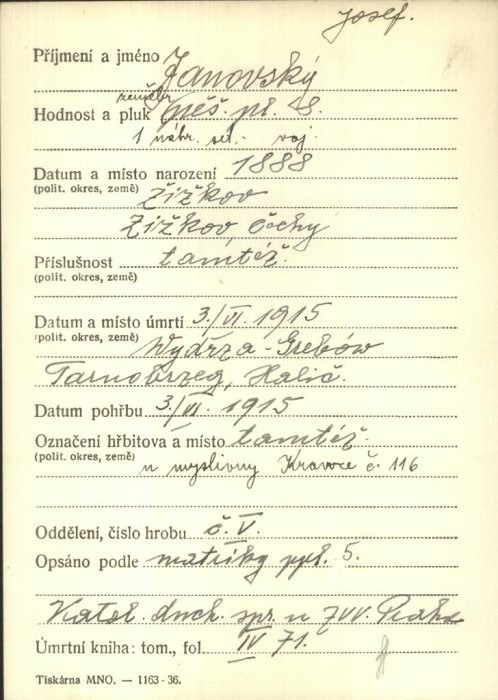 Josef.
Příjmení a jméno Janovský
Hodnost a pluk pěš. pl. 48.
1 náhr. set. voj.
Datum a místo narození 1888
(polit. okres, země) Žižkov
Žižkov, Čechy
Příslušnost tamtéž.
(polit. okres, země)
Datum a místo úmrtí 3./VI. 1915
(polit. okres, země) Wydrza-Grebów
Tarnobrzeg, Halič.
Datum pohřbu 3./VI. 1915
Označení hřbitova a místo tamtéž.
(polit. okres, země) u myslivny Kravce č. 116
Oddělení, číslo hrobu č. V.
Opsáno podle matriky ppl. 5.
Katol. duch. spr. u ZVV. Praha
Úmrtní kniha: tom., fol. IV 71.
Tiskárna MNO. — 1163-36.